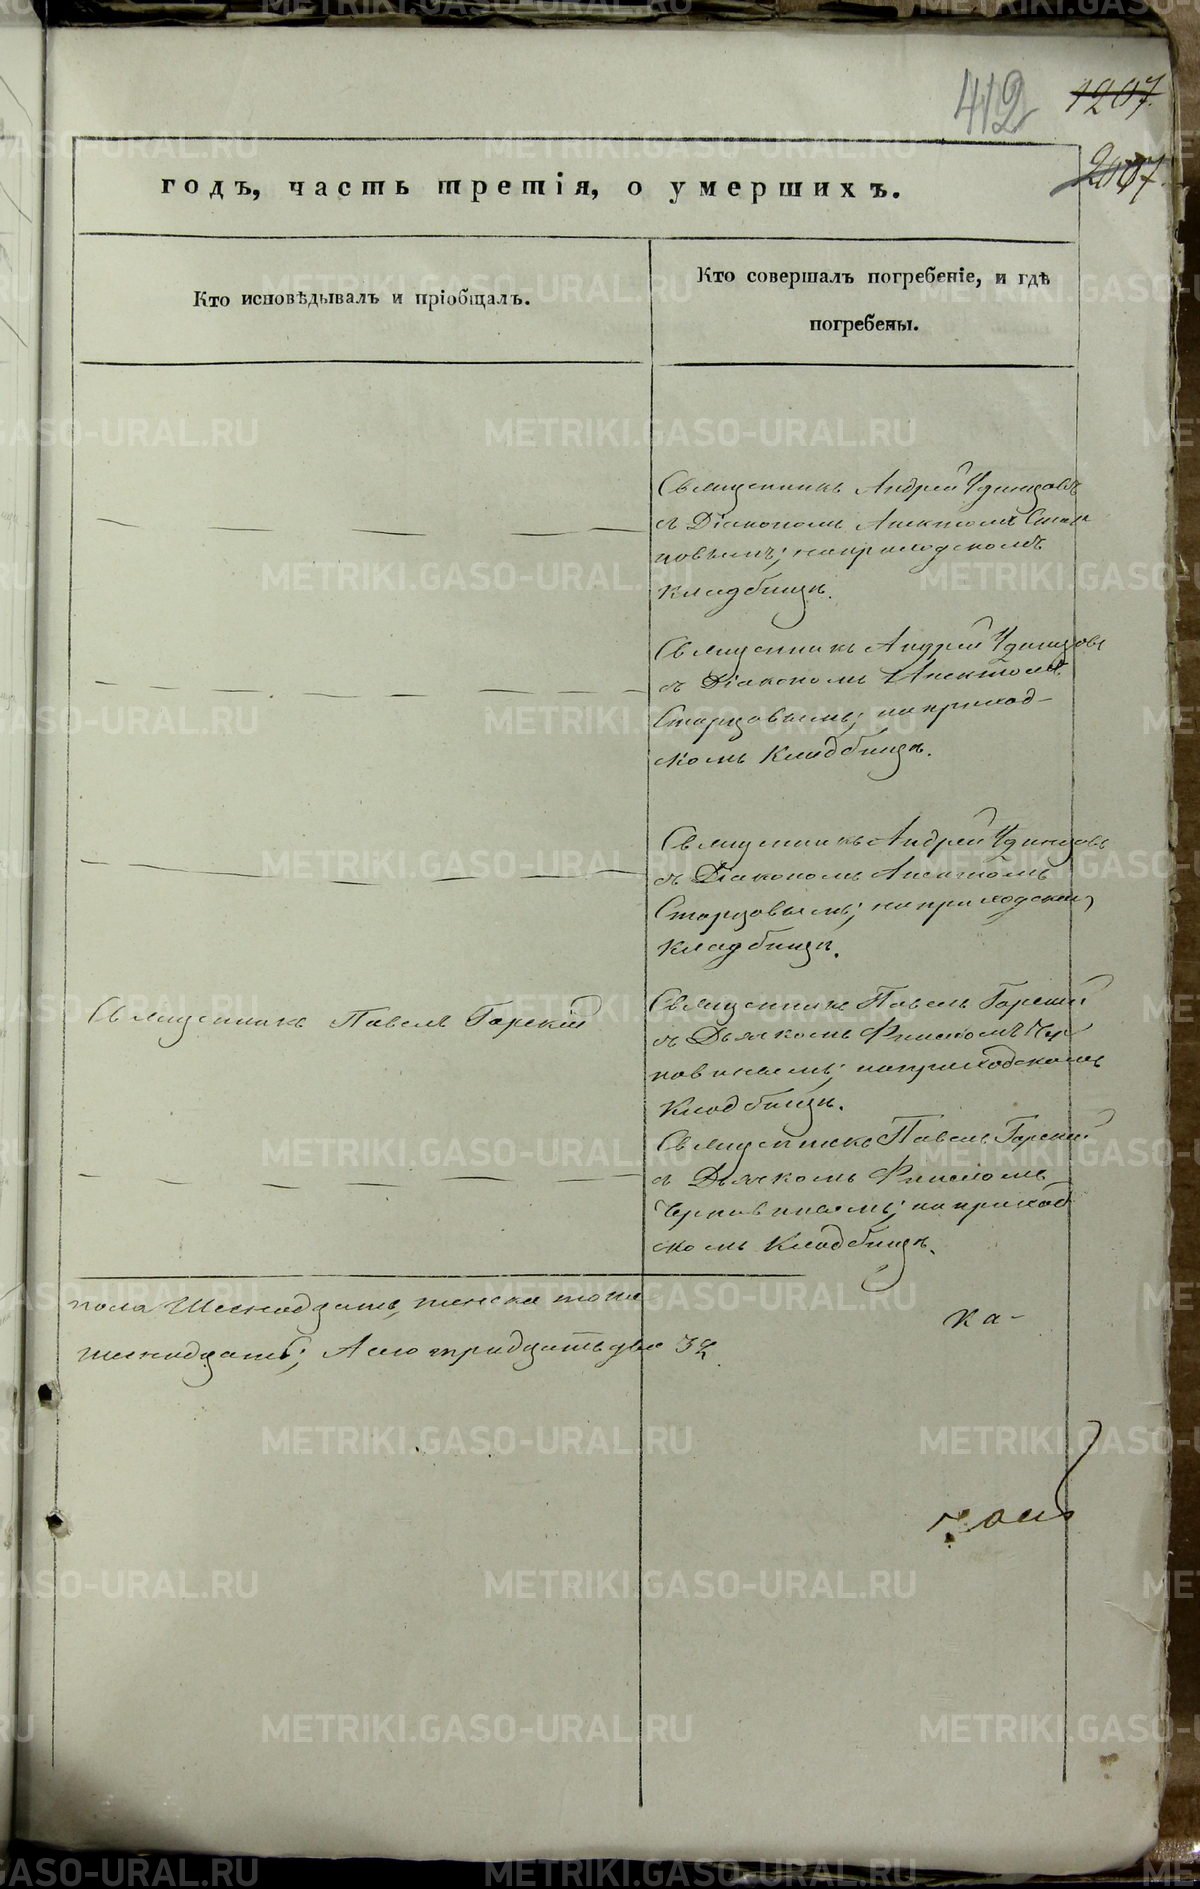 412 1207.
2007.
годъ, часть третія, о умершихъ.
Кто исповѣдывалъ и пріобщалъ.
Кто совершалъ погребеніе, и гдѣ
погребены.
Священникъ Андрей Удинцовъ
съ Діакономъ
новымъ; на приходскомъ
кладбищѣ.
Священникъ Андрей Удинцовъ
съ Діакономъ
Старцовымъ; на приход-
скомъ кладбищѣ.
Священникъ Андрей Удинцовъ
съ Діакономъ
Старцовымъ; на приходском
кладбищѣ.
Священникъ Павелъ Горскій
Священникъ Павелъ Горскій
съ Дьячкомъ
на приходскомъ
кладбищѣ.
Священникъ Павелъ Горскій
съ Дьячкомъ
на приход
скомъ кладбищѣ.
пола шестнадцать, женска тоже
шестнадцать; А всего тридцать два 32.
ка-
METRIKI.GASO-URAL.RU